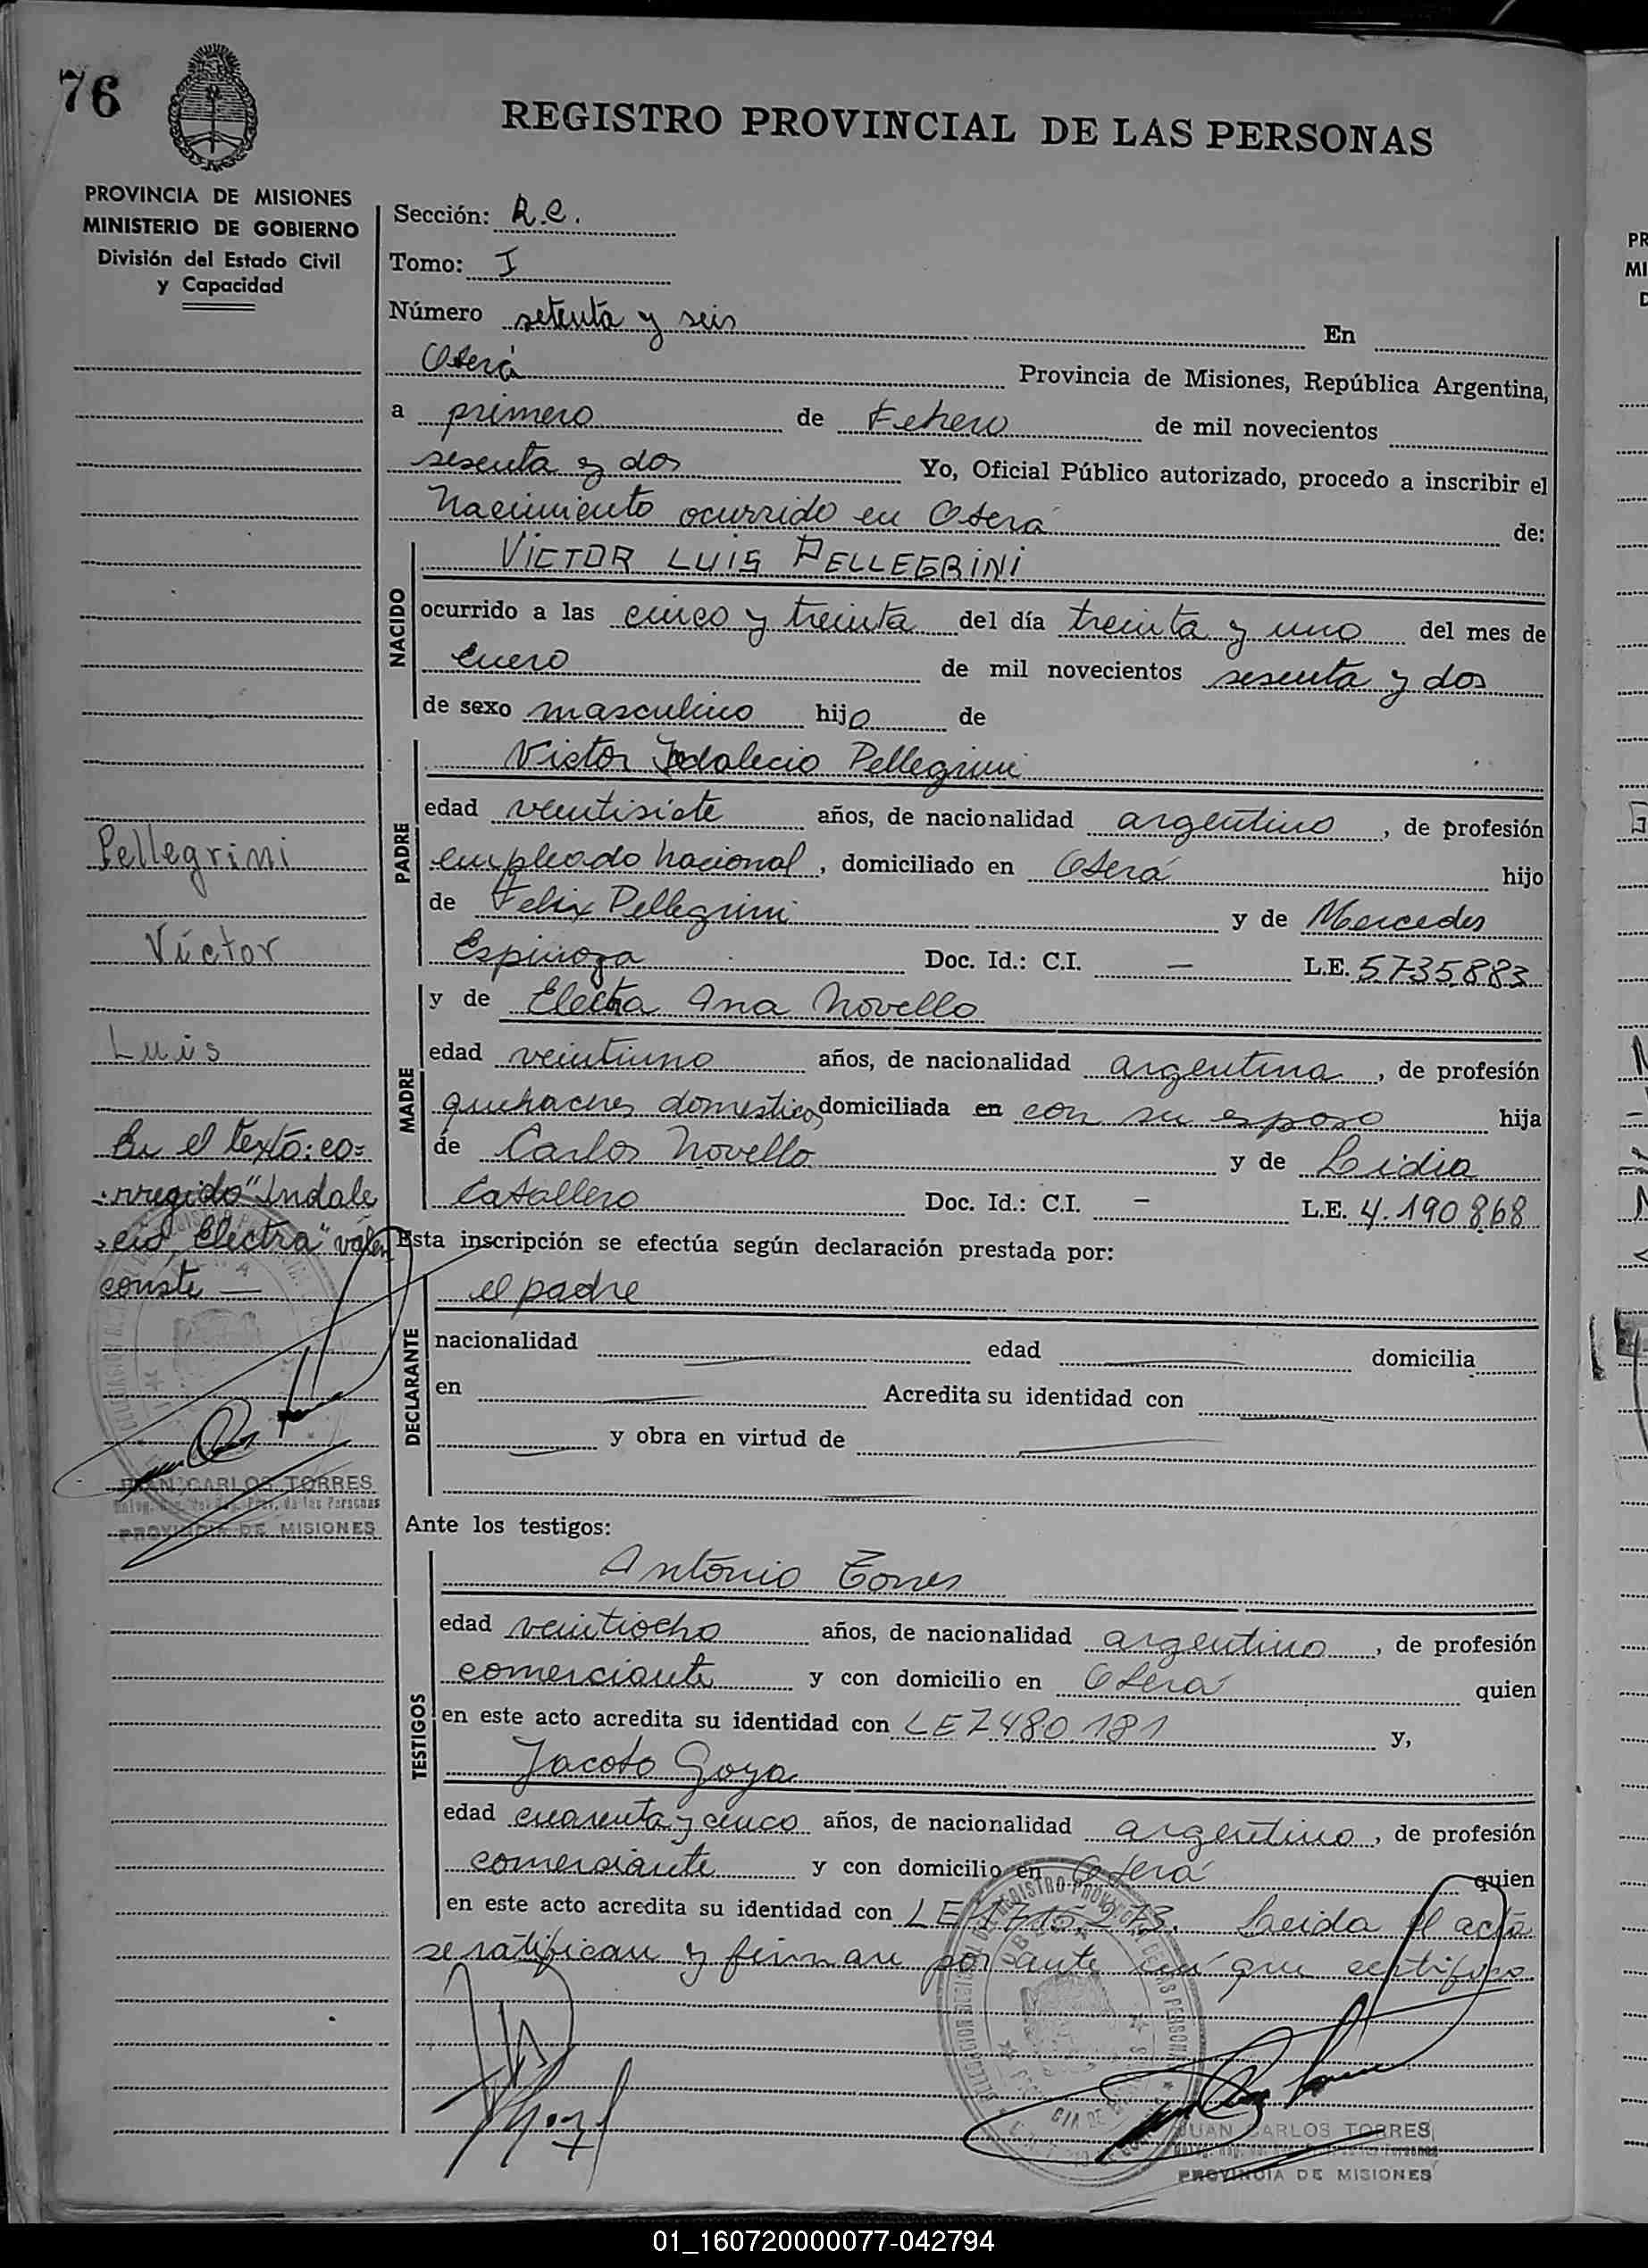 76
REGISTRO PROVINCIAL DE LAS PERSONAS
PROVINCIA DE MISIONES
MINISTERIO DE GOBIERNO
División del Estado Civil
y Capacidad
Sección: R.C.
Tomo: I
Número setenta y seis En
Oberá Provincia de Misiones, República Argentina,
a primero de Febrero de mil novecientos
sesenta y dos Yo, Oficial Público autorizado, procedo a inscribir el
Nacimiento ocurrido en Oberá de:
NACIDO
VICTOR LUIS PELLEGRINI
ocurrido a las cinco y treinta del día treinta y uno del mes de
enero de mil novecientos sesenta y dos
de sexo masculino hijo de
PADRE
Victor Indalecio Pellegrini
edad veintisiete años, de nacionalidad argentino, de profesión
empleado nacional, domiciliado en Oberá hijo
de Felix Pellegrini y de Mercedes
Espinoza Doc. Id.: C.I. — L.E. 5735883
MADRE
y de Electra Ana Novello
edad veintiuno años, de nacionalidad argentina, de profesión
quehaceres domesticos domiciliada en con su esposo hija
de Carlos Novello y de Lidia
Caballero Doc. Id.: C.I. — L.E. 4.190868
Esta inscripción se efectúa según declaración prestada por:
DECLARANTE
el padre
nacionalidad edad domicilia
en Acredita su identidad con
y obra en virtud de
Ante los testigos:
TESTIGOS
Antonio Torres
edad veintiocho años, de nacionalidad argentino, de profesión
comerciante y con domicilio en Oberá quien
en este acto acredita su identidad con LE 7480181 y,
Jacobo Goya
edad cuarenta y cinco años, de nacionalidad argentino, de profesión
comerciante y con domicilio en Oberá quien
en este acto acredita su identidad con LE Leida el acta
se ratifican y firman por ante mí que certifico
Pellegrini
Víctor
Luis
En el texto: co=
rregido "Indale
cio, Electra" valen
conste —
JUAN CARLOS TORRES
PROVINCIA DE MISIONES
JUAN CARLOS TORRES
PROVINCIA DE MISIONES
01_160720000077-042794